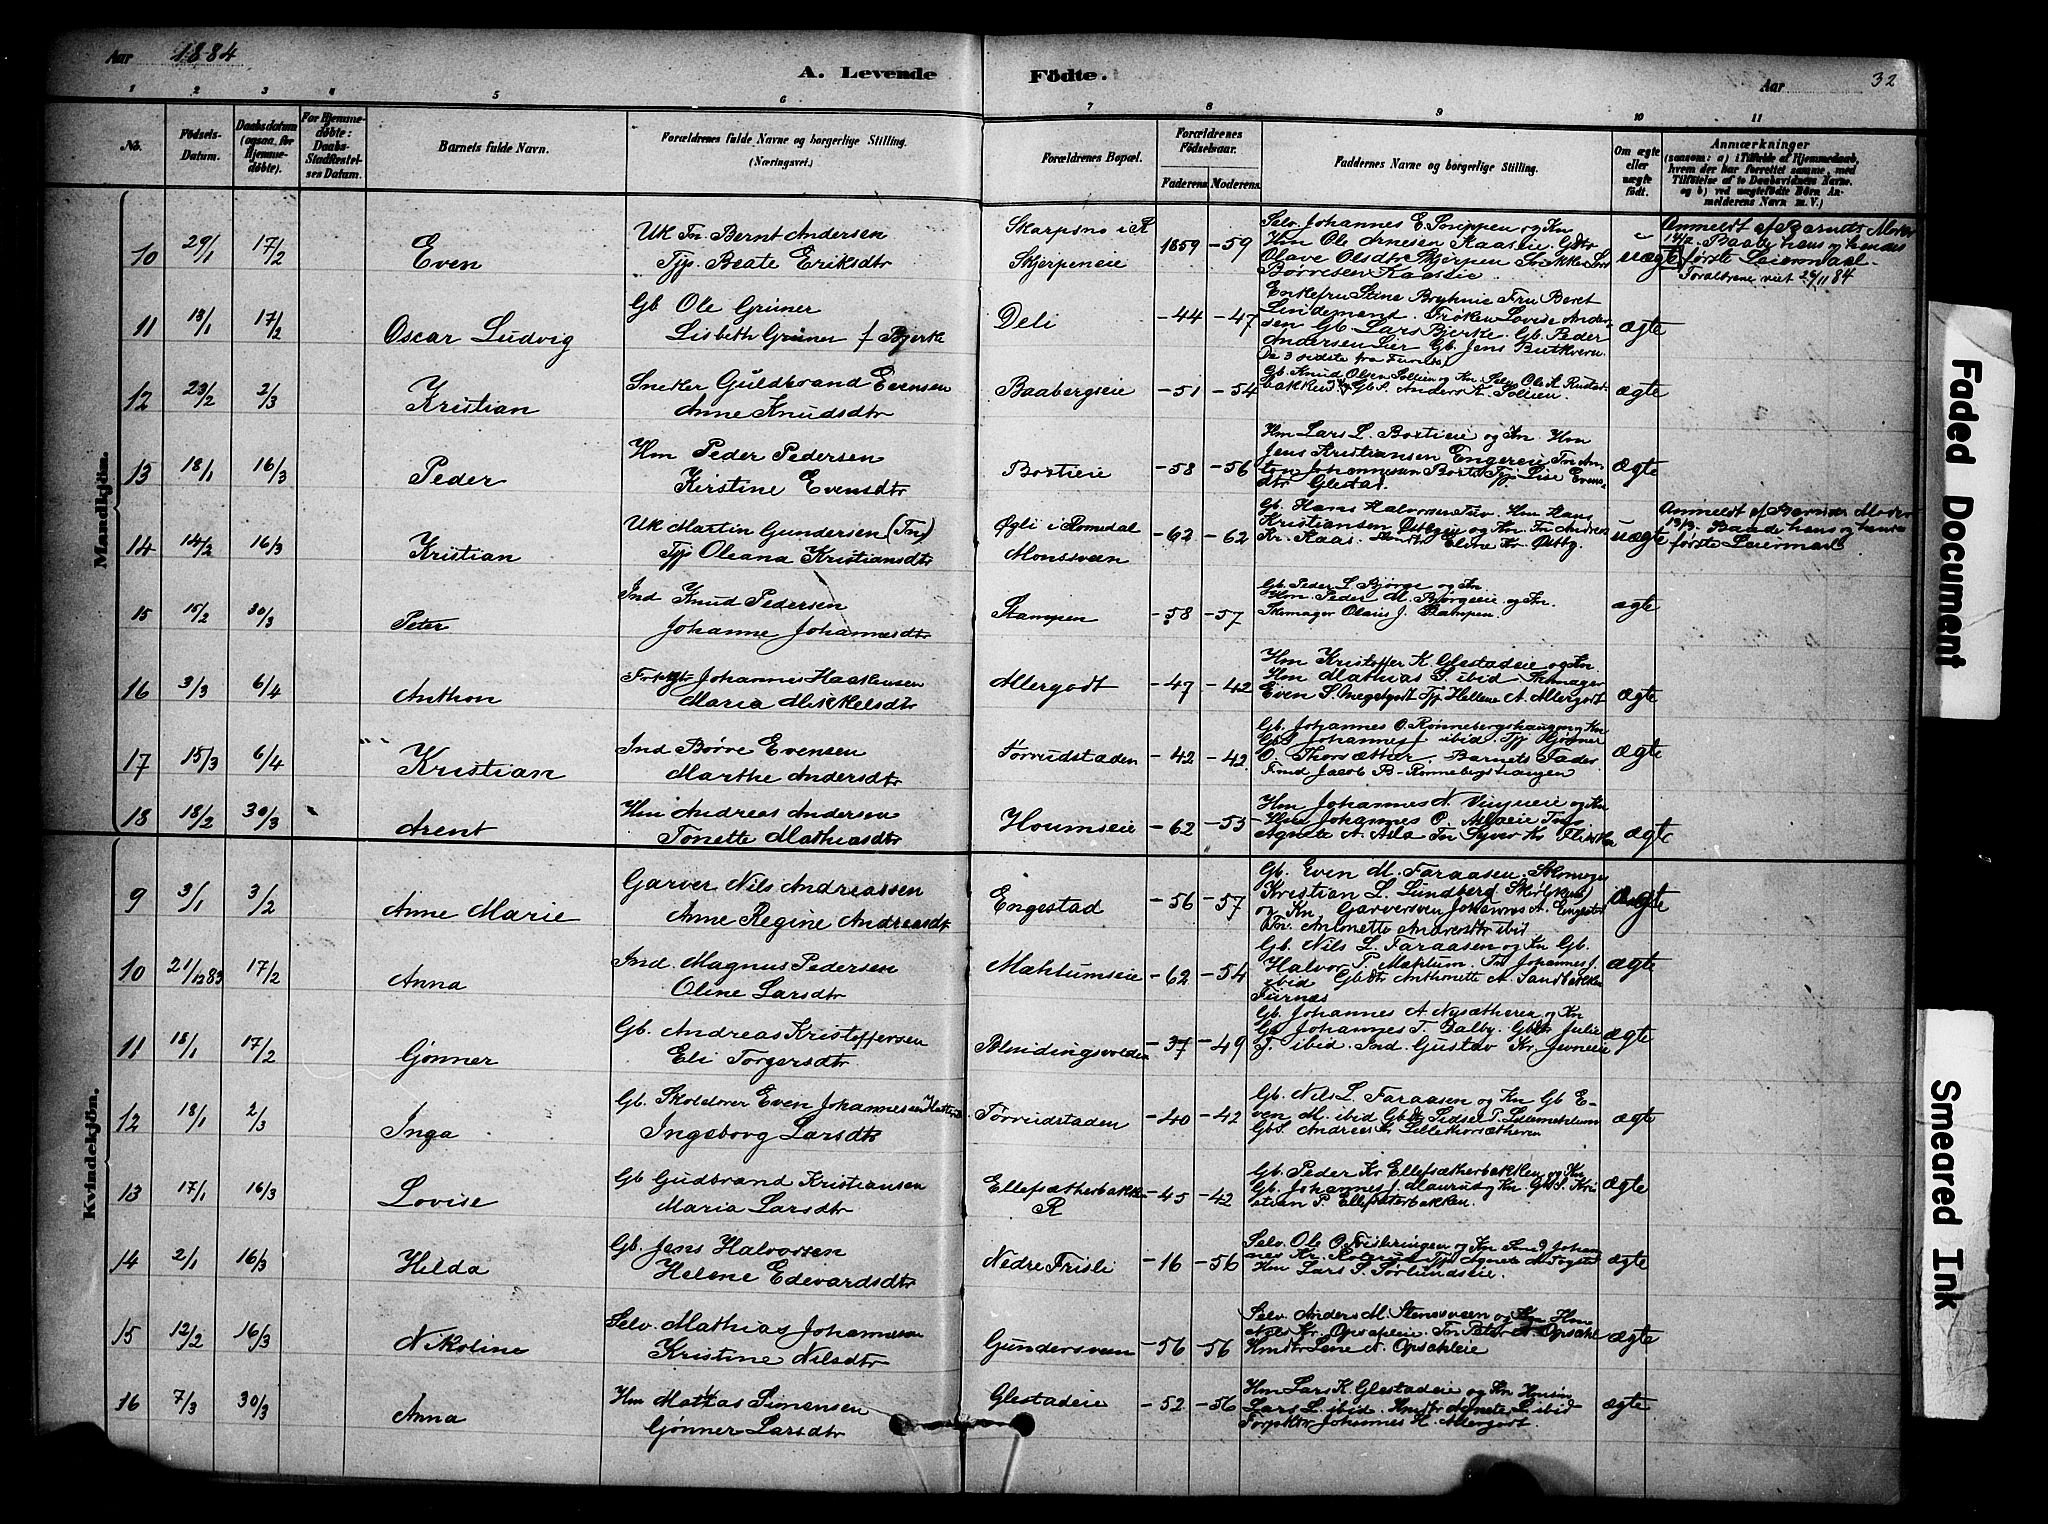 Aar 1884
A. Levende Födte.
Aar
32
1 2 3 4 5 6 7 8 9 10 11
No.
Födsels-Datum.
Daabsdatum (ogsaa for Hjemmedöbte).
For Hjemmedöbte: Daabs-Stadfæstelses Datum.
Barnets fulde Navn.
Forældrenes fulde Navne og borgerlige Stilling. (Næringsvei.)
Forældrenes Bopæl.
Forældrenes Födselsaar.
Faderens. Moderens.
Faddernes Navne og borgerlige Stilling.
Om ægte eller uægte födt.
Anmærkninger (saasom: a) i Tilfælde af Hjemmedaab, hvem der har forrettet samme, med Tilföielse af to Daabsvidners Navne, og b) ved uægtefödte Börn Anmelderens Navn m. V.)
Mandkjön.
10 29/1 17/2 Even
Uk Tn. Bernt Andersen
Tjp. Beate Eriksdtr
Skarpsno i R
Skjerpeneie
1859 -59
Selv. Johannes E. Snippen og Kn
Hm Ole Arnesen Kaaseie. Gdtr
Olave Olsdtr Skjerpen
Børresen Kaaseie
uægte
Anmeldt af Barnets Moder
14/2. Baade hans og hendes
første Leiermaal.
Forældrene viet 26/11 84
11 13/1 17/2 Oscar Ludvig
Gb. Ole Grüner
Lisbeth Grüner f Bjerke
Deli -44 -47
Enkefru Stine Bryhnie Fru Beret
Lindemand Frøken Lovise Ander-
sen Gb Lars Bjerke. Gb. Peder
Andersen Lier Gb. Jens Butkvern
De 3 sidste fra Furnes
ægte
12 23/2 2/3 Kristian
Sneker Guldbrand Evensen
Anne Knudsdtr
Baabergseie -51 -54
Gb. Knud Olsen Sollien og Kn. Selv. Ole A. Rustad-
bakken Gbs. Anders A. Sollien.
ægte
13 18/1 16/3 Peder
Hm Peder Pedersen
Kirstine Evensdtr
Bortieie -58 -56
Hm Lars L. Bortieie og Kn. Hm
Jens Kristiansen Engereie Tn An-
ton Johannesen Borte Tjp Lise Evens-
dtr Glestad.
ægte
14 14/2 16/3 Kristian
Uk Martin Gundersen (Tn)
Tjp Oleana Kristiansdtr
Øgli i Romedal
Monssveen
-62 -62
Gb. Hans Halvorsen Hm Hans
Kristiansen Østbyeie og Kn Tn Andreas
Kr. Kaas. Eline Kr. Østby.
uægte
Anmeldt af Barnets Moder
13/3. Baade hans og hendes
første Leiermaal
15 15/2 30/3 Peter
Ind Knud Pedersen
Johanne Johannesdtr
Stampen -58 -57
Gb. Peder L. Bjørge og Kn.
Hm. Peder M. Bjørgeie og Kn.
Skomager Olaus J. Stampen.
ægte
16 3/3 6/4 Anthon
Johannis Haakensen
Maria Mikkelsdtr
Allergodt -47 -42
Hm Kristoffer K. Glestadeie og Kn
Hm Mathias S. ibid Skomager
Even S. Snegelgodt Tjp Hellene A Allergodt
ægte
17 15/3 6/4 Kristian
Ind Børve Evensen
Marthe Andersdtr
Torrudstaden -42 -42
Gb. Johannes O. Rønnebergshaugen og Kn
Gbs. Johannes J ibid. Tjp Gjønner
O. Thorsæther. Barnets Fader
Tmd Jacob B. Rønnebergshaugen
ægte
18 18/2 30/3 Arent
Hm Andreas Andersen
Tonette Mathiasdtr
Houmseie -62 -53
Hm Johannes N. Vingneie og Kn
Hm Johannes O. Allaeie
Agnete A. Alla Tn Syver Kr.
ægte
Kvindekjön.
9 3/1 3/2 Anne Marie
Garver Nils Andreassen
Anne Regine Andreasdtr
Engestad -56 -57
Gb. Even M. Faraasen. Skomager
Kristian L. Lundberg
og Kn. Garversven Johannes A. Engestad
Tn. Antonette Andreasdtr ibid
ægte
10 21/12 83 17/2 Anna
Ind. Magnus Pedersen
Oline Larsdtr
Mæhlumseie -62 -54
Gb. Nils L. Faraasen og Kn Gb.
Halvor P. Mæhlum. Tn Johannes J.
ibid Gbdtr Anthonette A. Sandbakken
Furnæs
ægte
11 18/1 17/2 Gjønner
Gb. Andreas Kristoffersen
Eli Torgersdtr
Blindingsvolden -37 -49
Gb. Johannes A Nysætheren og Kn
Gb Johannes T. Dalby. Gbdtr Julie
J. ibid. Ind. Gustav Kr. Jevneie
ægte
12 18/1 2/3 Inga
Gb. Skolelærer Even Johannesen
Ingeborg Larsdtr
Torrudstaden -40 -42
Gb. Nils L. Faraasen og Kn Gb E-
ven M. ibid Gbdtr Sidsel P.
Gbs. Andreas Kr Lillethorsætheren
ægte
13 17/1 16/3 Lovise
Gb Gudbrand Kristiansen
Maria Larsdtr
Ellefsætherbakken
R
-45 -42
Gb. Peder Kr Ellefsætherbakken og Kn
Gb. Johannes J. Maurud og Kn Gbs. Kri-
stian P. Ellefsæterbakken.
ægte
14 2/1 16/3 Hilda
Gb. Jens Halvorsen
Helene Edevardsdtr
Nedre Frisli -16 -56
Selv. Ole O. og Kn Johan-
nes Kr. Tjp Agnete M
Hm Lars S. Sørlundseie.
ægte
15 12/2 16/3 Nikoline
Selv. Mathias Johannesen
Kristine Nilsdtr
Gundersveen -56 -56
Selv. Anders M. Stensveen og Kn Hm
Kr. Opsahleie. Tn Peter A Opsahl
Hmdtr Lene N. Opsahleie
ægte
16 7/3 30/3 Anna
Hm Mathias Simensen
Gjønner Larsdtr
Glestadeie -52 -56
Hm Lars K. Glestadeie og Kn
Lars L. ibid. Hmdtr Agnete L ibid
Johannes H. Allergodt.
ægte
Faded Document
Smeared Ink